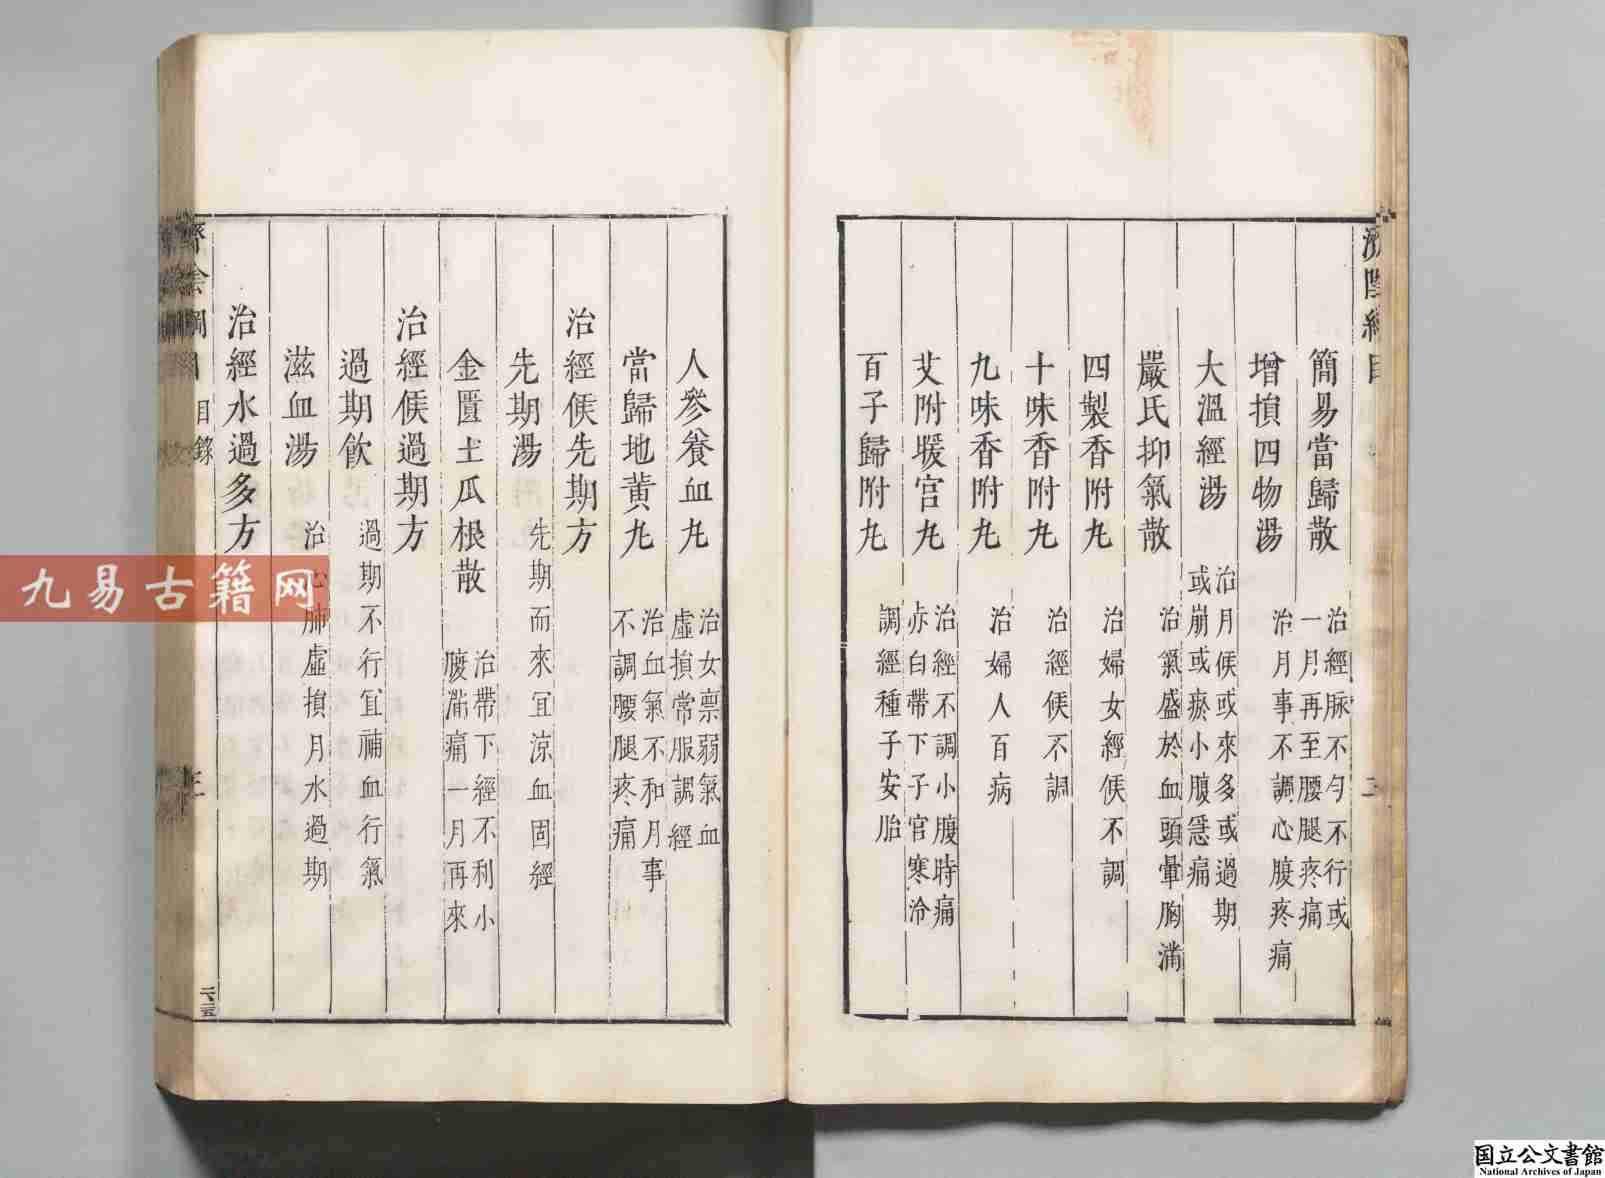 簡易當歸散 治經脉不勻不行或一月再至腰腿疼痛
增損四物湯 治月事不調心腹疼痛
大溫經湯 治月候或來多或過期或崩或瘀小腹急痛
嚴氏抑氣散 治氣盛於血頭暈胸滿
四製香附丸 治婦女經候不調
十味香附丸 治經候不調
九味香附丸 治婦人百病
艾附暖宮丸 治經不調小腹時痛赤白帶下子宮寒冷
百子歸附丸 調經種子安胎
人參養血丸 治女稟弱氣血虛損常服調經
當歸地黃丸 治血氣不和月事不調腰腿疼痛
治經候先期方
先期湯 先期而來宜涼血固經
金匱土瓜根散 治帶下經不利小腹滿痛一月再來
治經候過期方
過期飲 過期不行宜補血行氣
滋血湯 治心肺虛損月水過期
治經水過多方
目錄
三
九易古籍网
国立公文書館
National Archives of Japan